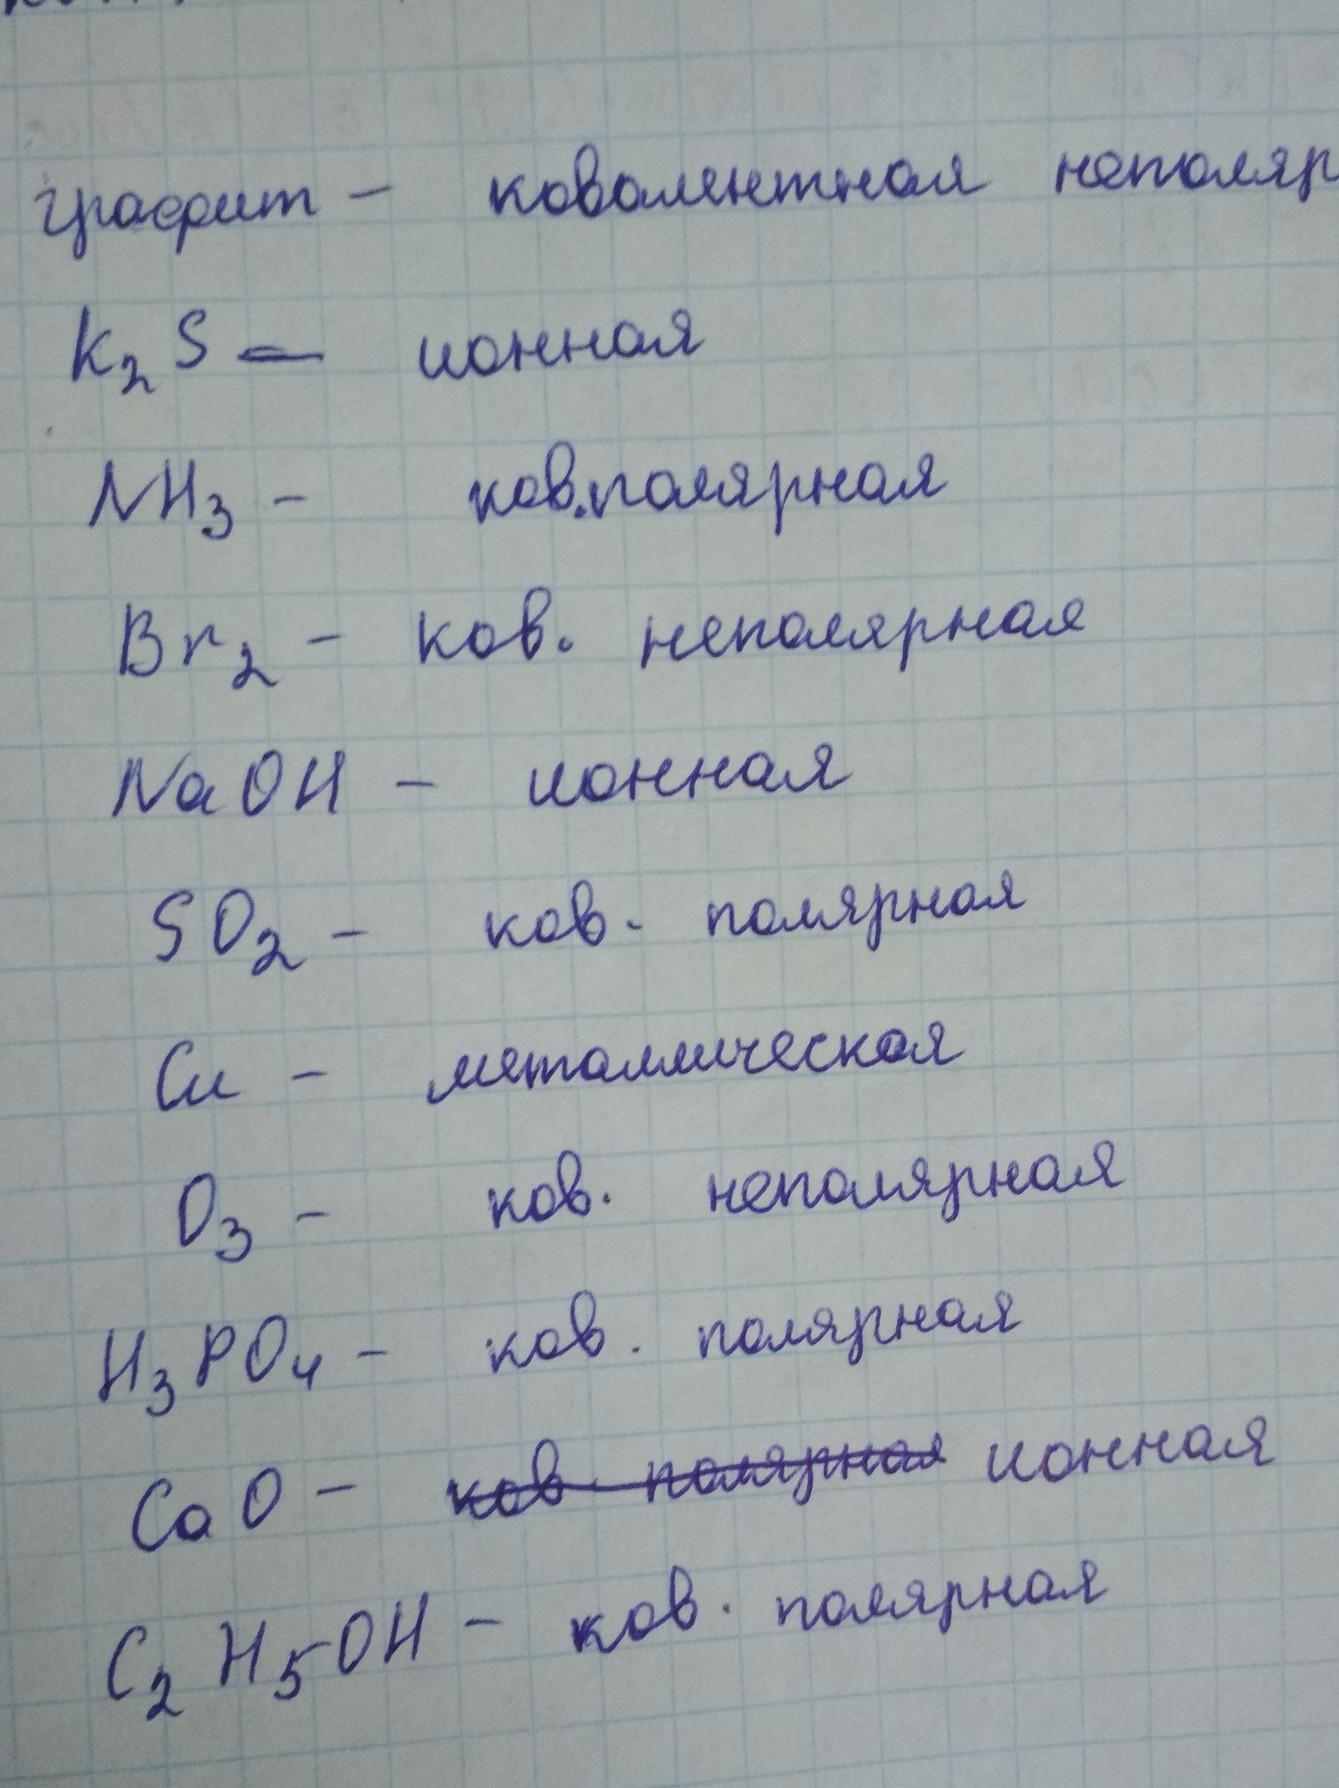 графит - ковалентная неполяр
K₂S — ионная
NH₃ - ков.полярная
Br₂ - ков. неполярная
NaOH - ионная
SO₂ - ков. полярная
Cu - металлическая
O₃ - ков. неполярная
H₃PO₄ - ков. полярная
CaO - ков. полярная ионная
C₂H₅OH - ков. полярная